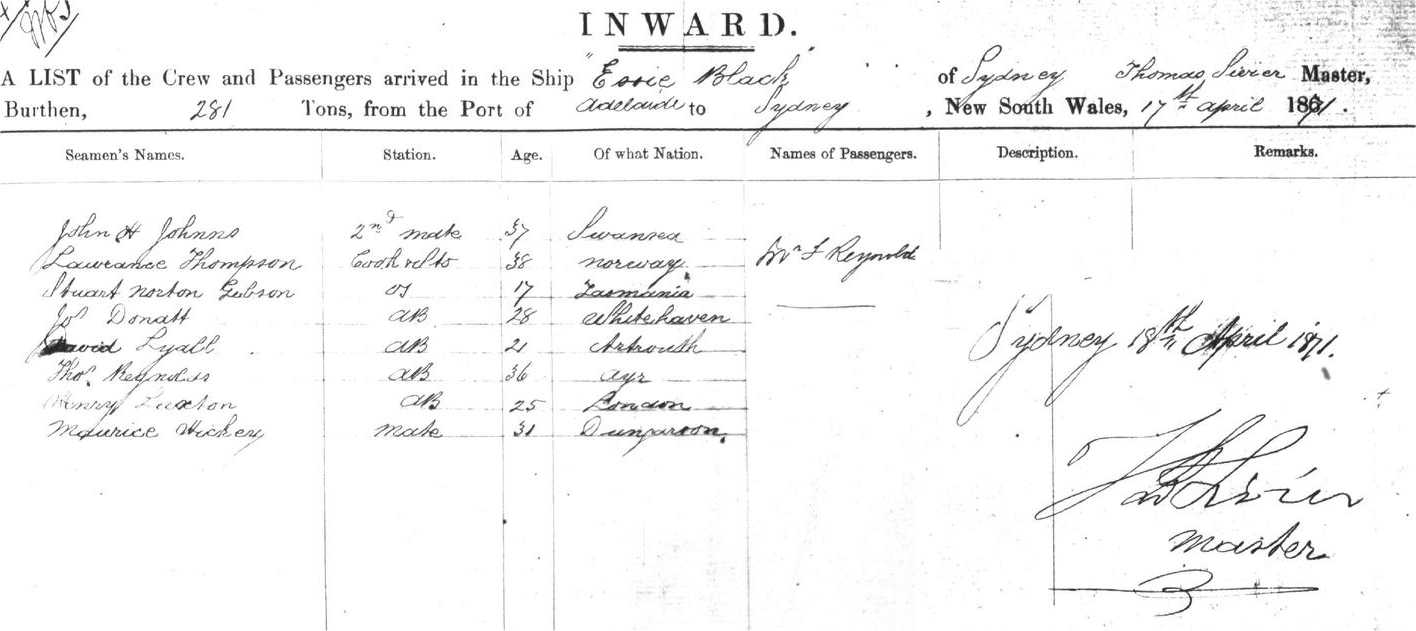 INWARD.
A LIST of the Crew and Passengers arrived in the Ship "Essie Black" of Sydney Thomas Master,
Burthen, 281 Tons, from the Port of Adelaide to Sydney, New South Wales, 17th April 1871.
Seamen's Names. Station. Age. Of what Nation. Names of Passengers. Description. Remarks.
John H Johnns 2nd mate 37 Swansea
Lawrance Thompson Cook 38 Norway Mr F Reynolds
Stuart Norton Gibson OS 17 Tasmania
Jos Donatt AB 28 Whitehaven
David Lyall AB 21
Thos Reynolds AB 36 Ayr
Henry Luxton AB 25 London
Maurice Hickey Mate 31
Sydney 18th April 1871.
Master